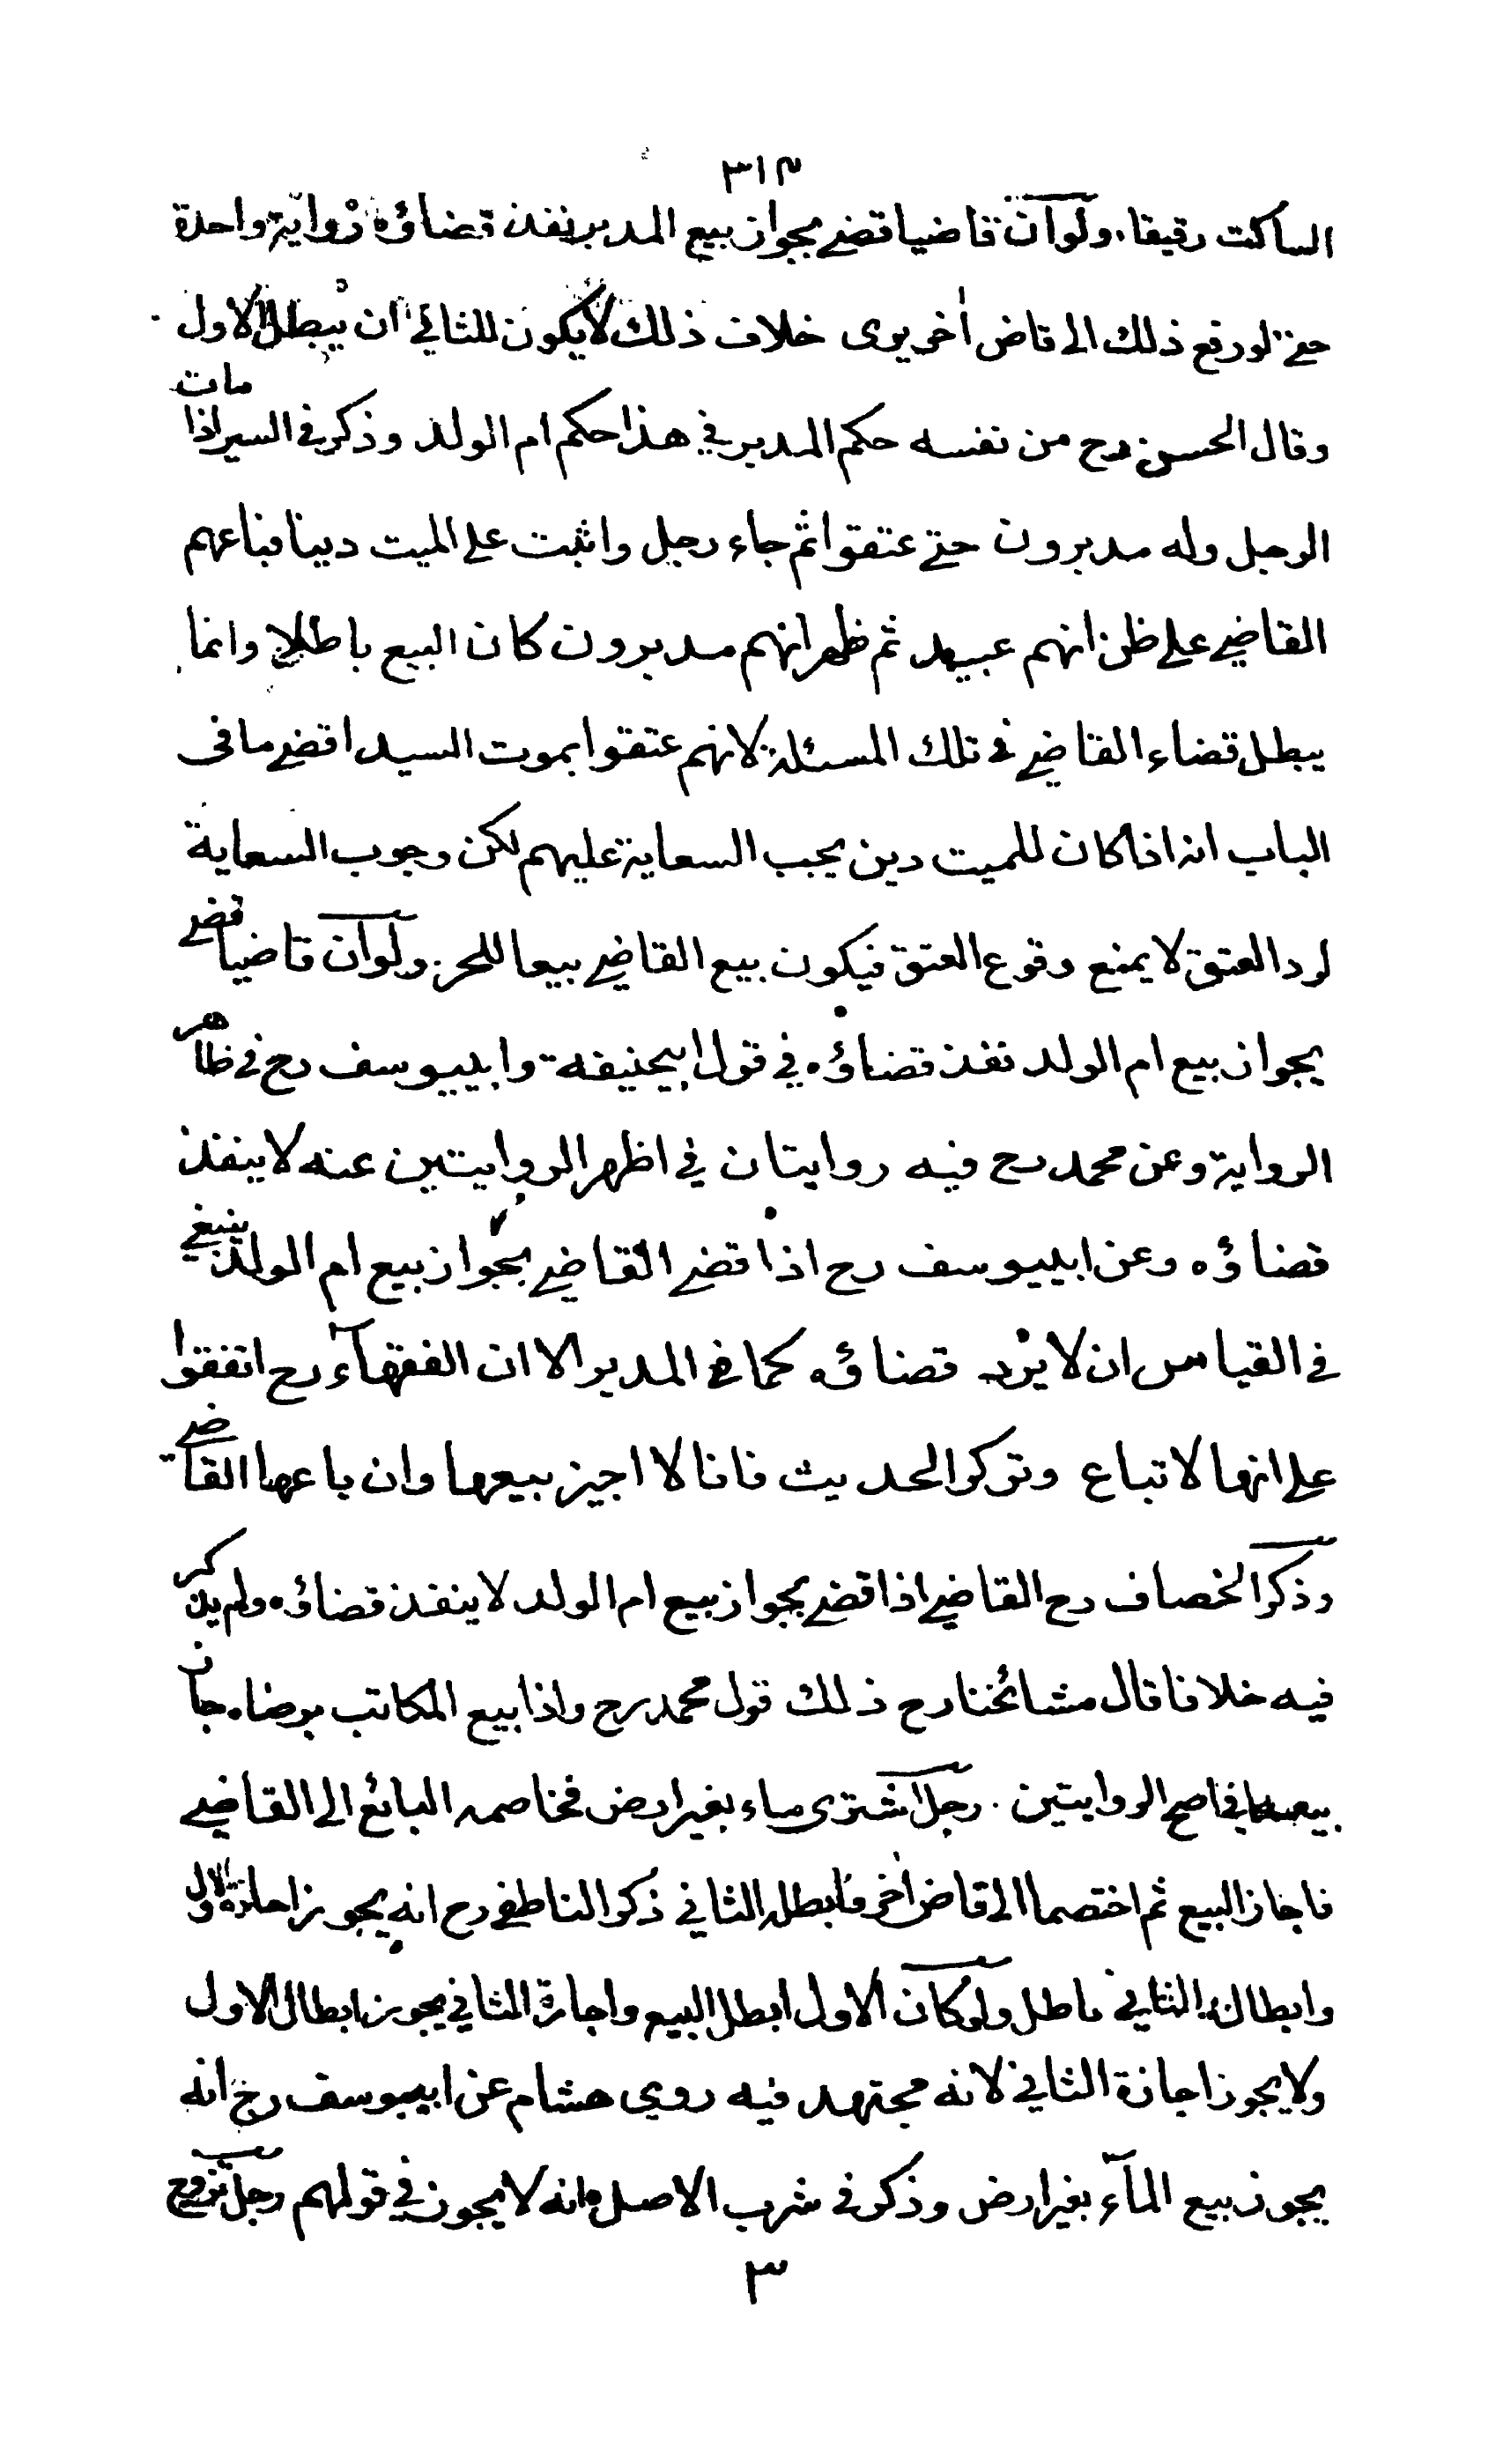 ٣١٣
الساكت رقيقا، ولو ان قاضيا قضى بجواز بيع المدبر نفذ قضاؤه رواية واحدة
حتى لو رفع ذلك الى قاض اٰخر يرى خلاف ذلك لا يكون للثاني ان يبطل الاول
وقال الحسن رح من نفسه حكم المدبر في هذا حكم ام الولد وذكر في السير اذا مات
الرجل وله مدبرون حتى عتقوا ثم جاء رجل واثبت على الميت دينا فباعهم
القاضي على ظن انهم عبيد ثم ظهر انهم مدبرون كان البيع باطلا وانما
يبطل قضاء القاضي في تلك المسئلة لانهم عتقوا بموت السيد اقضى ما فى
الباب انه اذا كان للميت دين يجب السعاية عليهم لكن وجوب السعاية
لرد العتق لا يمنع وقوع العتق فيكون بيع القاضي بيعا للحر. ولو ان قاضيا قضى
بجواز بيع ام الولد نفذ قضاؤه في قول ابيحنيفة وابييوسف رح في ظاهر
الرواية وعن محمد رح فيه روايتان في اظهر الروايتين عنه لا ينفذ
قضاؤه وعن ابييوسف رح اذا قضى القاضي بجواز بيع ام الولد ينبغي
في القياس ان لا يرد قضاؤه كما في المدبر الا ان الفقهآء رح اتفقوا
على انها لا تباع وتركوا الحديث فانا لا اجيز بيعها وان باعها القاضي
وذكر الخصاف رح القاضي اذا قضى بجواز بيع ام الولد لا ينفذ قضاؤه ولم يذكر
فيه خلافا قال مشائخنا رح ذلك قول محمد رح واذا بيع المكاتب برضاه جاز
بيعه في اصح الروايتين. رجل اشترى ماء بغير ارض فخاصمه البائع الى القاضي
فاجاز البيع ثم اختصما الى قاض اٰخر فابطله الثاني ذكر الناطفي رح انه يجوز اجازة الاول
وابطال الثاني باطل ولو كان الاول ابطل البيع واجازة الثاني يجوز ابطال الاول
ولا يجوز اجازة الثاني لانه مجتهد فيه روى هشام عن ابييوسف رح انه
يجوز بيع المآء بغير ارض وذكر في شرب الاصل انه لا يجوز في قولهم رجل تزوج
٣